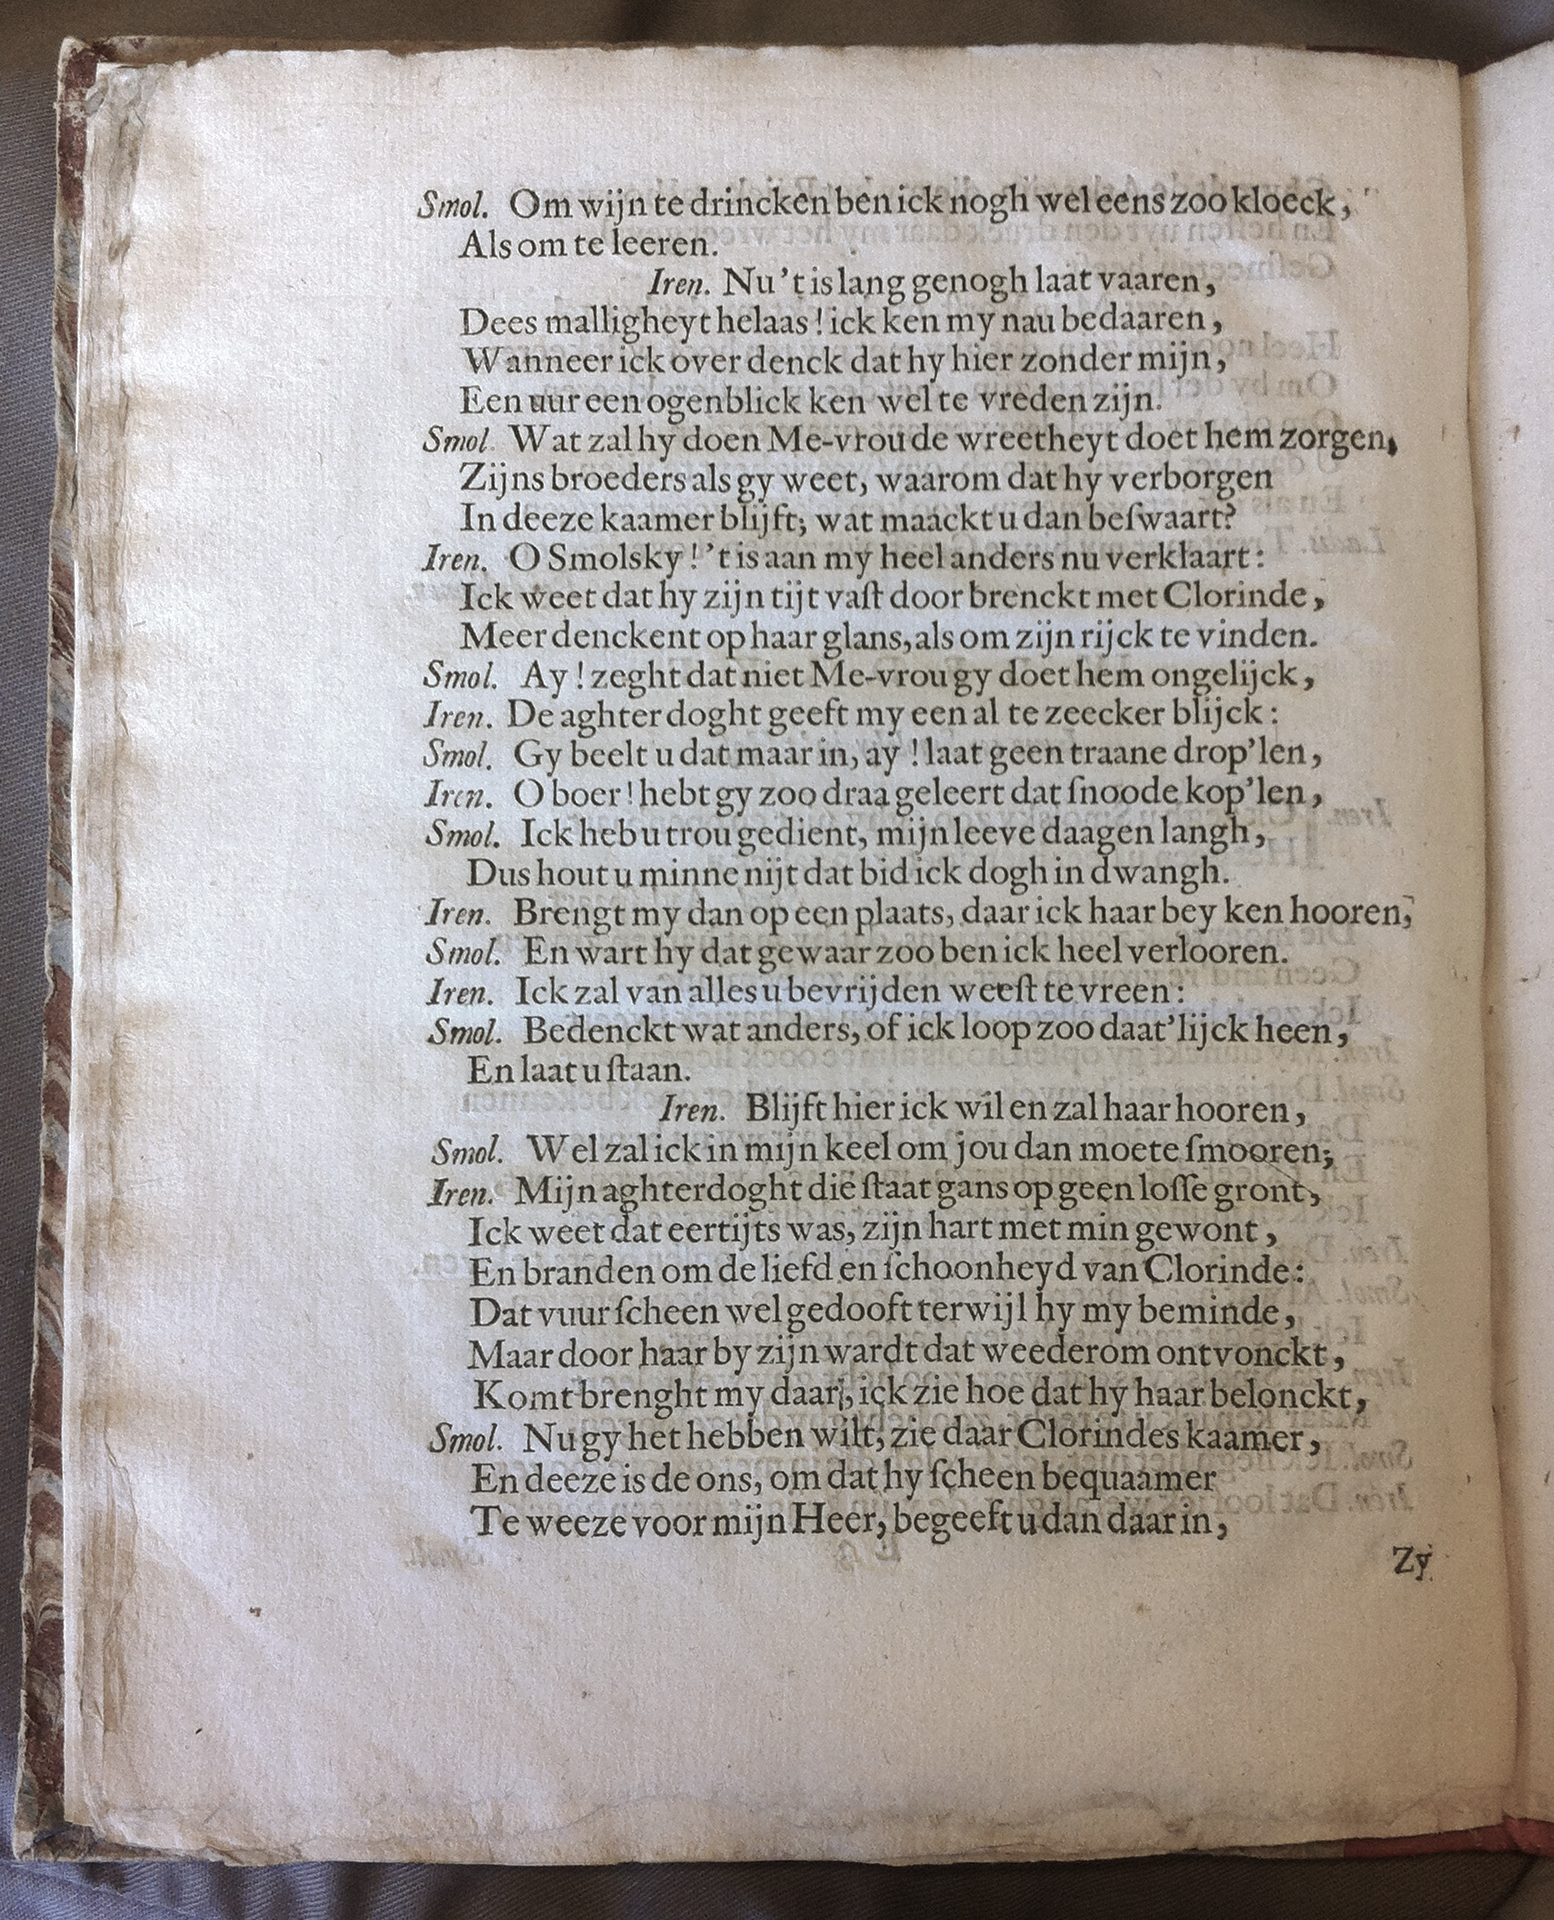 Smol. Om wijn te drincken ben ick nogh wel eens zoo kloeck,
Als om te leeren.
Iren. Nu 't is lang genogh laat vaaren,
Dees malligheyt helaas! ick ken my nau bedaaren,
Wanneer ick over denck dat hy hier zonder mijn,
Een uur een ogenblick ken wel te vreden zijn.
Smol. Wat zal hy doen Me-vrou de wreetheyt doet hem zorgen,
Zijns broeders als gy weet, waarom dat hy verborgen
In deeze kaamer blijft; wat maackt u dan beſwaart?
Iren. O Smolsky! 't is aan my heel anders nu verklaart:
Ick weet dat hy zijn tijt vaſt door brenckt met Clorinde,
Meer denckent op haar glans, als om zijn rijck te vinden.
Smol. Ay! zeght dat niet Me-vrou gy doet hem ongelijck,
Iren. De aghterdoght geeft my een al te zeecker blijck:
Smol. Gy beelt u dat maar in, ay! laat geen traane drop'len,
Iren. O boer! hebt gy zoo draa geleert dat ſnoode kop'len,
Smol. Ick heb u trou gedient, mijn leeve daagen langh,
Dus hout u minne nijt dat bid ick dogh in dwangh.
Iren. Brengt my dan op een plaats, daar ick haar bey ken hooren,
Smol. En wart hy dat gewaar zoo ben ick heel verlooren.
Iren. Ick zal van alles u bevrijden weeſt te vreen:
Smol. Bedenckt wat anders, of ick loop zoo daat'lijck heen,
En laat u ſtaan.
Iren. Blijft hier ick wil en zal haar hooren,
Smol. Wel zal ick in mijn keel om jou dan moete ſmooren;
Iren. Mijn aghterdoght die ſtaat gans op geen loſſe gront,
Ick weet dat eertijts was, zijn hart met min gewont,
En branden om de liefd en ſchoonheyd van Clorinde:
Dat vuur ſcheen wel gedooft terwijl hy my beminde,
Maar door haar by zijn wardt dat weederom ontvonckt,
Komt brenght my daar, ick zie hoe dat hy haar belonckt,
Smol. Nu gy het hebben wilt, zie daar Clorindes kaamer,
En deeze is de ons, om dat hy ſcheen bequaamer
Te weeze voor mijn Heer, begeeft u dan daar in,
Zy